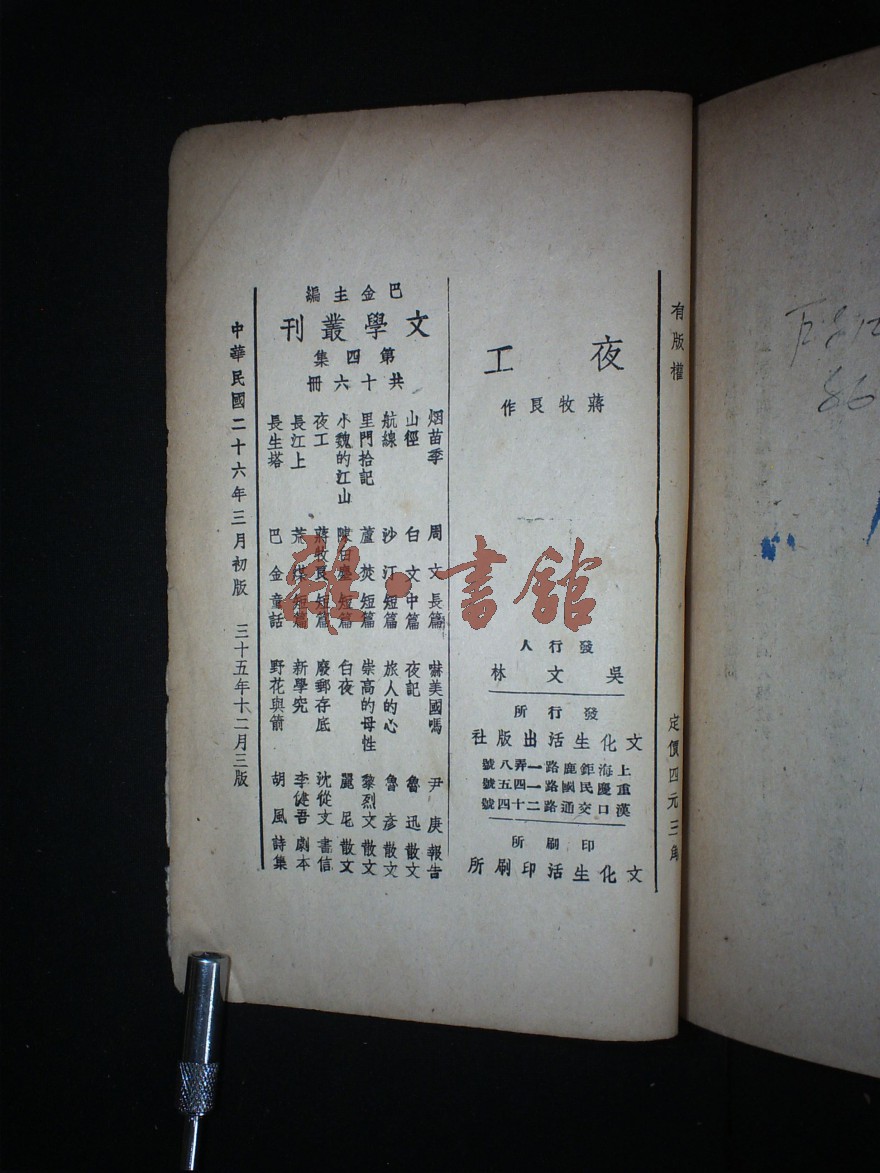 有版權
定價四元三角
夜工
蔣牧良作
發行人
吳文林
發行所
文化生活出版社
上海鉅鹿路一弄八號
重慶民國路一四五號
漢口交通路二十四號
印刷所
文化生活印刷所
巴金主編
文學叢刊
第四集
共十六冊
烟苗季 周文 長篇
山徑 白文 中篇
航線 沙汀 短篇
里門拾記 蘆焚 短篇
小魏的江山 陳白塵 短篇
夜工 蔣牧良 短篇
長江上 荒煤 短篇
長生塔 巴金 童話
嚇美國嗎 尹庚 報告
夜記 魯迅 散文
旅人的心 魯彥 散文
崇高的母性 黎烈文 散文
白夜 麗尼 散文
廢郵存底 沈從文 書信
新學究 李健吾 劇本
野花與箭 胡風 詩集
中華民國二十六年三月初版 三十五年十二月三版
雜·書館
86